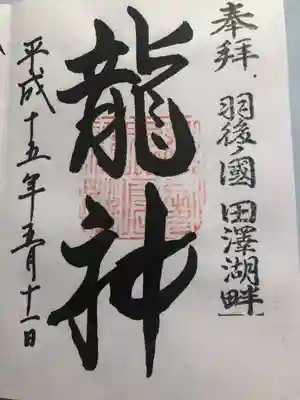 奉拝、羽後國田澤湖畔
龍神
平成十五年五月十一日